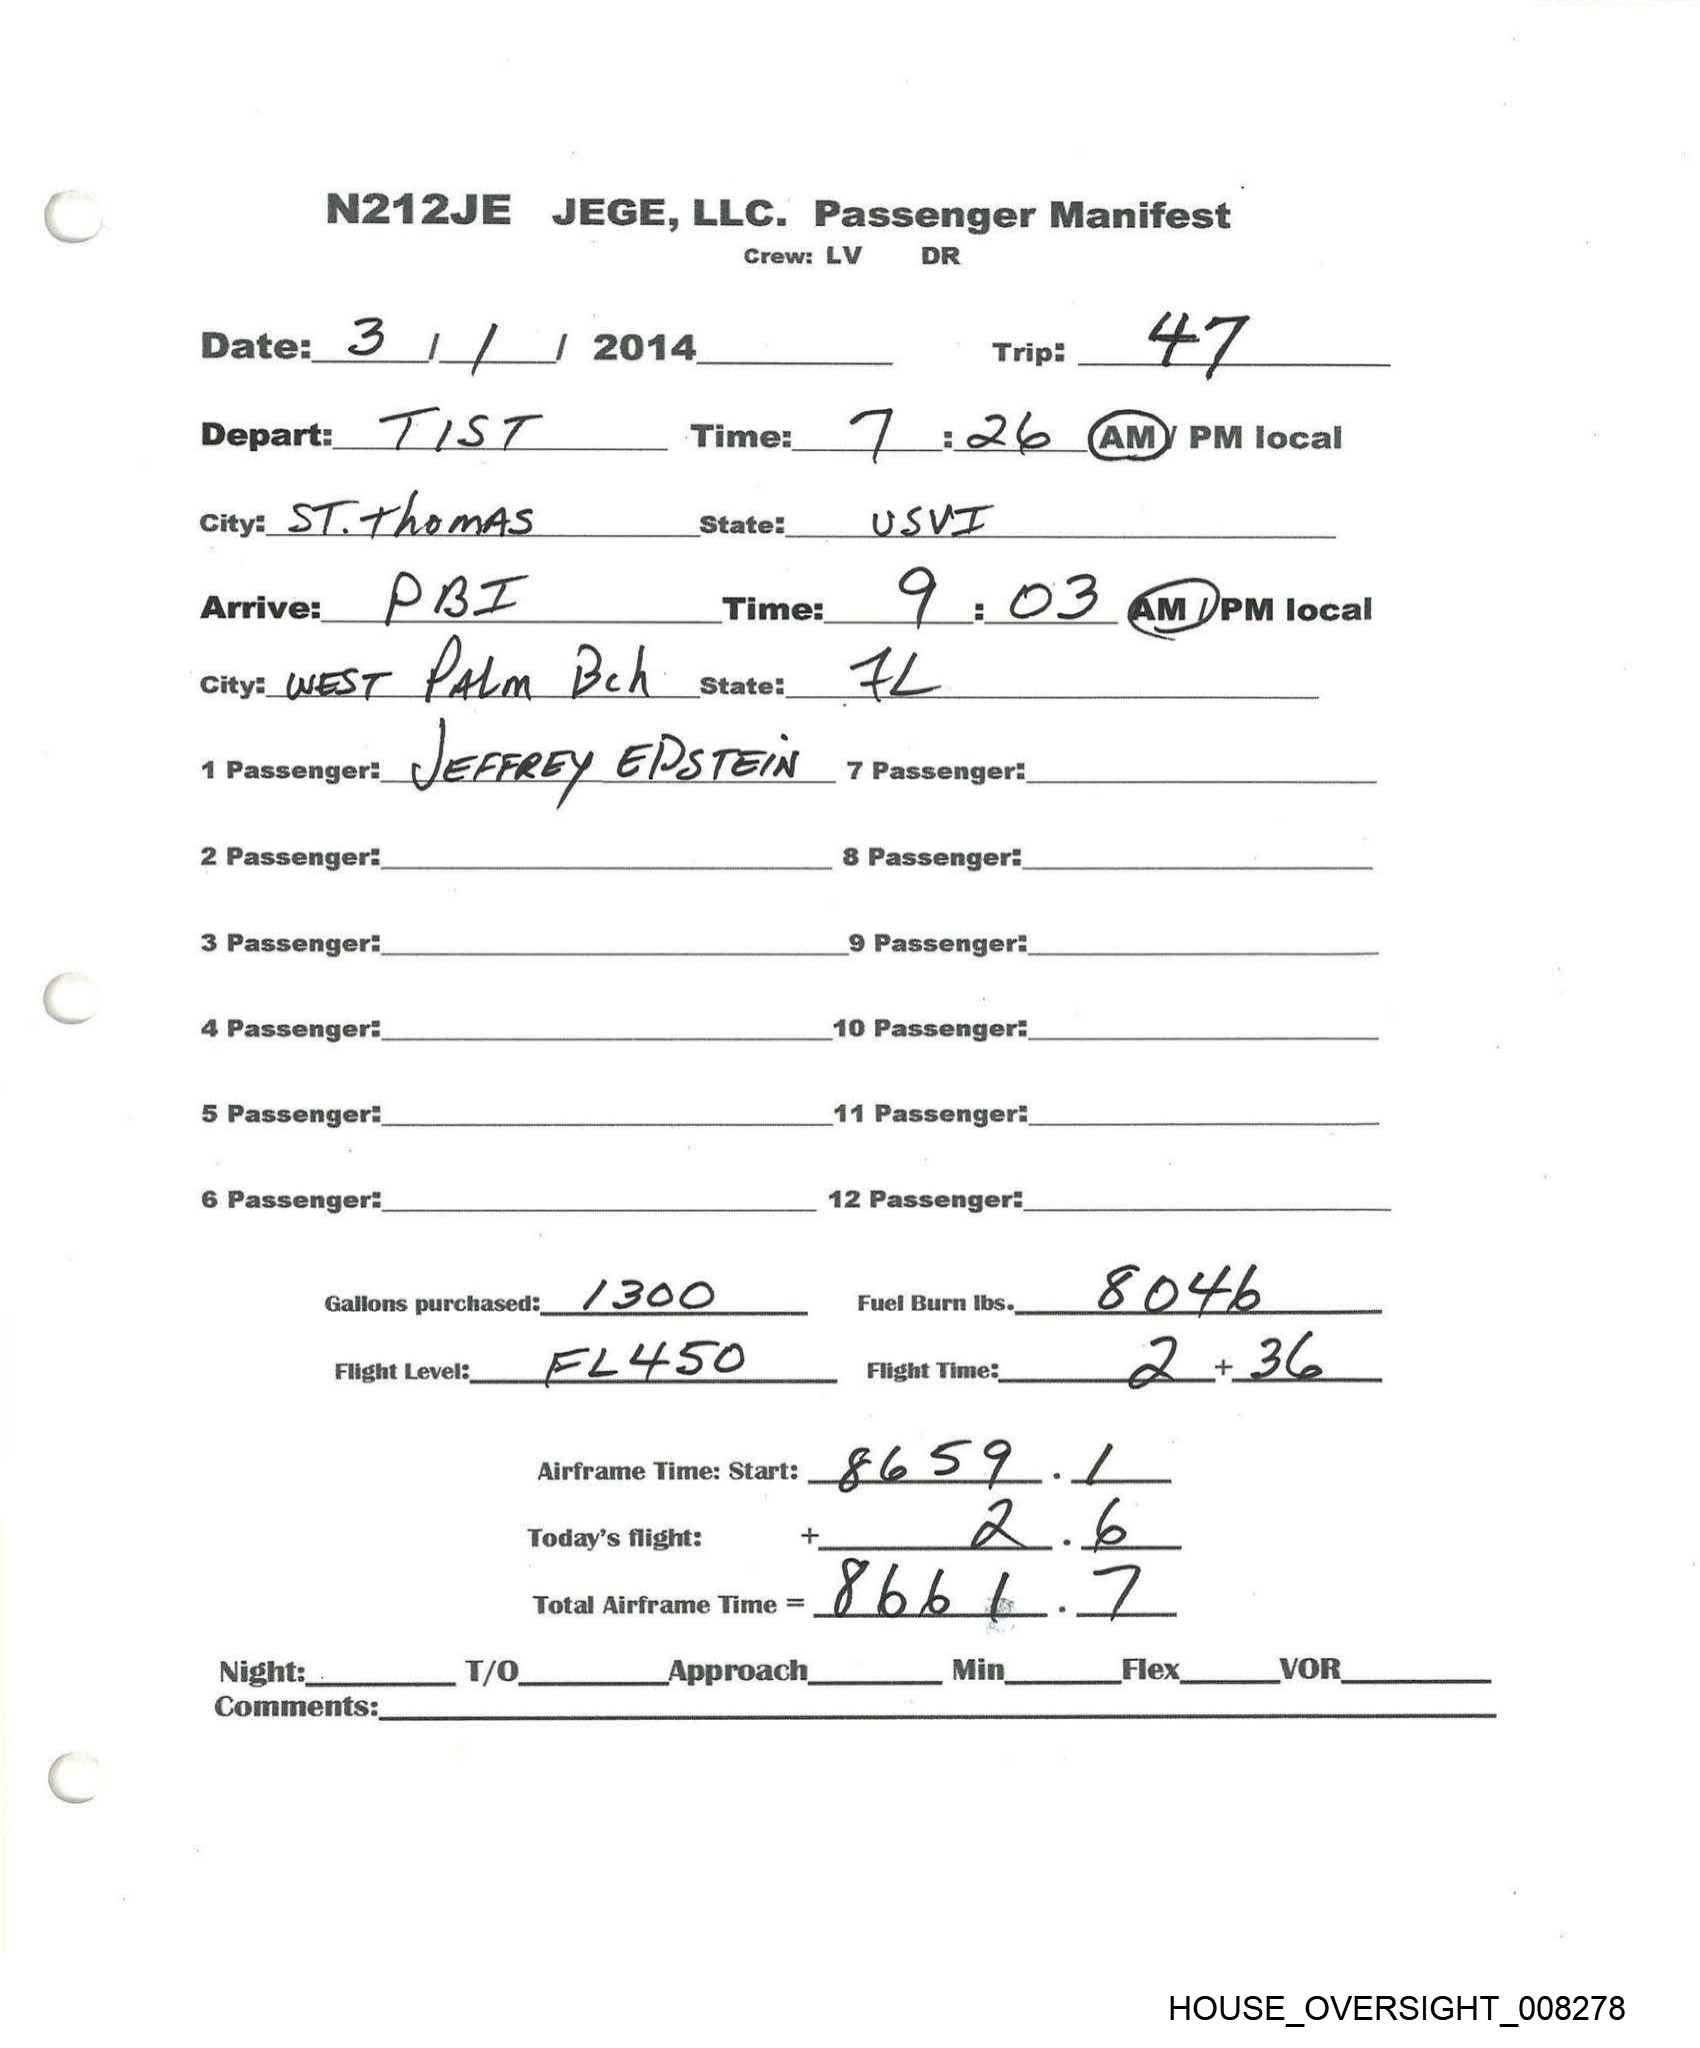 N212JE JEGE, LLC. Passenger Manifest
Crew: LV DR
Date: 3 / 1 / 2014 Trip: 47
Depart: TIST Time: 7 : 26 AM / PM local
City: ST. Thomas State: USVI
Arrive: PBI Time: 9 : 03 AM / PM local
City: WEST PALM Bch State: FL
1 Passenger: JEFFREY EPSTEIN 7 Passenger:
2 Passenger: 8 Passenger:
3 Passenger: 9 Passenger:
4 Passenger: 10 Passenger:
5 Passenger: 11 Passenger:
6 Passenger: 12 Passenger:
Gallons purchased: 1300 Fuel Burn lbs. 8046
Flight Level: FL450 Flight Time: 2 + 36
Airframe Time: Start: 8659 . 1
Today's flight: + 2 . 6
Total Airframe Time = 8661 . 7
Night: T/O Approach Min Flex VOR
Comments:
HOUSE_OVERSIGHT_008278